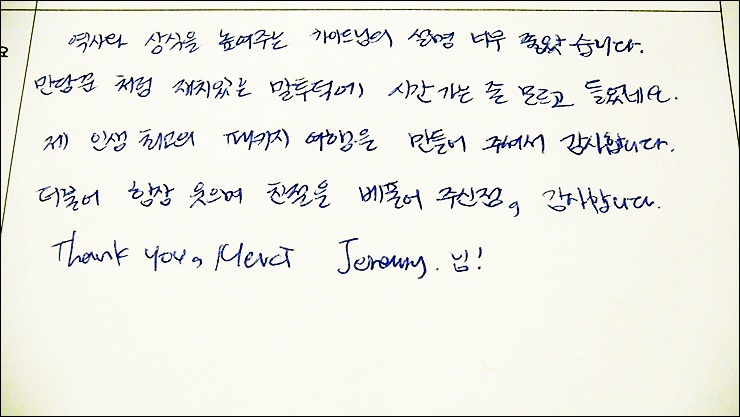 요
역사와 상식을 높여주는 가이드님의 설명 너무 좋았습니다.
만담꾼 처럼 재치있는 말투덕에 시간 가는 줄 모르고 들었네요.
제 인생 최고의 패키지 여행을 만들어 주셔서 감사합니다.
더불어 항상 웃으며 친절을 베풀어 주신점, 감사합니다.
Thank you, Merci Jeremy. 님!